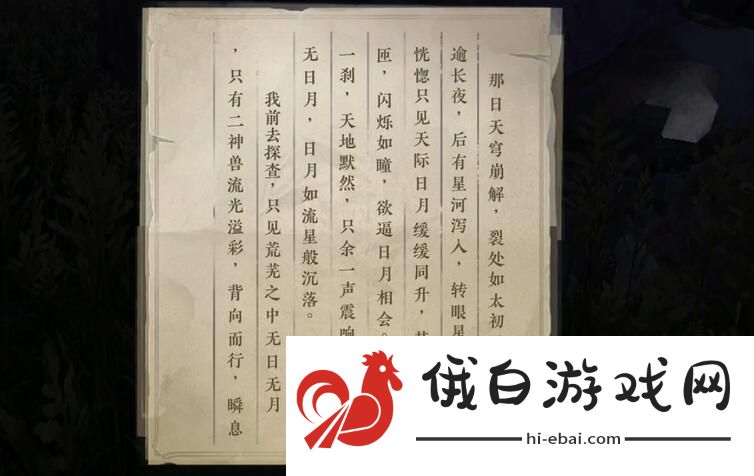 那日天穹崩解，裂处如太初
逾长夜，后有星河泻入，转眼星
恍惚只见天际日月缓缓同升，其
匝，闪烁如瞳，欲逼日月相会。
一刹，天地默然，只余一声震响
无日月，日月如流星般沉落。
我前去探查，只见荒芜之中无日无月
，只有二神兽流光溢彩，背向而行，瞬息
俄白游戏网
hi-ebai.com